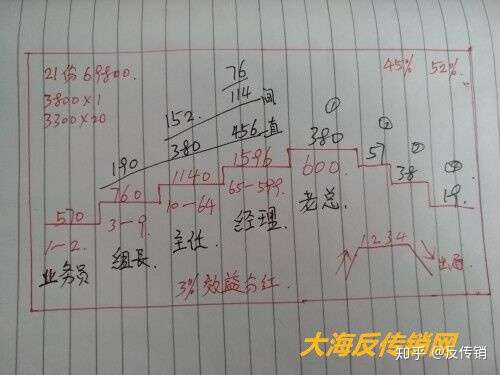 21份69800.
3800×1
3300×20
45% 52%
76
114 间
152.
456 直
380
190
① 380
57 ②
38 ③
19. ④
570
760
1140
1596
600.
1-2.
3-9.
10-64
65-599.
业务员
组长.
主任.
经理.
老总.
1 2 3 4
出局
3%效益分红.
大海反传销网
知乎 @反传销